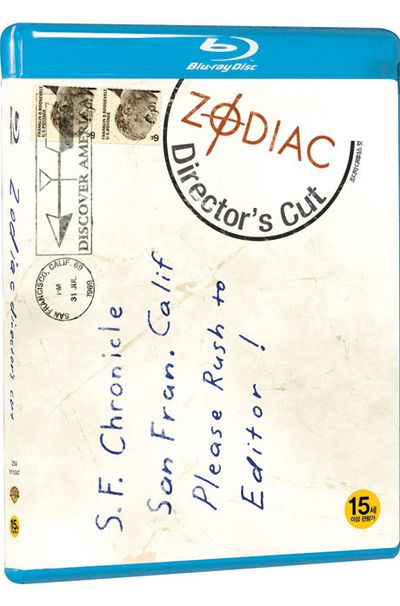 Blu-ray Disc
ZODIAC
Director's Cut
조디악 디렉터스 컷
FRANKLIN D. ROOSEVELT
U.S. POSTAGE
6¢
FRANKLIN D. ROOSEVELT
U.S. POSTAGE
6¢
DISCOVER AMERICA
SAN FRANCISCO, CALIF. 69
PM
31 JUL
1969
S.F. Chronicle
San Fran. Calif
Please Rush to
Editor!
Zodiac directors cut
15세
15세
이상 관람가